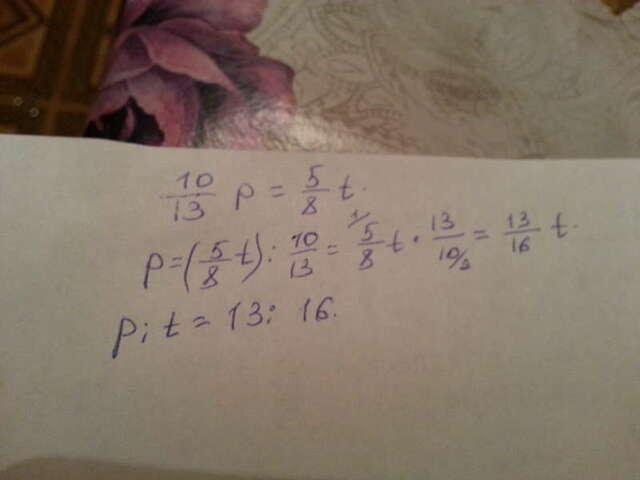 10/13 p = 5/8 t.
p=(5/8 t): 10/13 = 5/8 t · 13/10 = 13/16 t.
p: t = 13: 16.